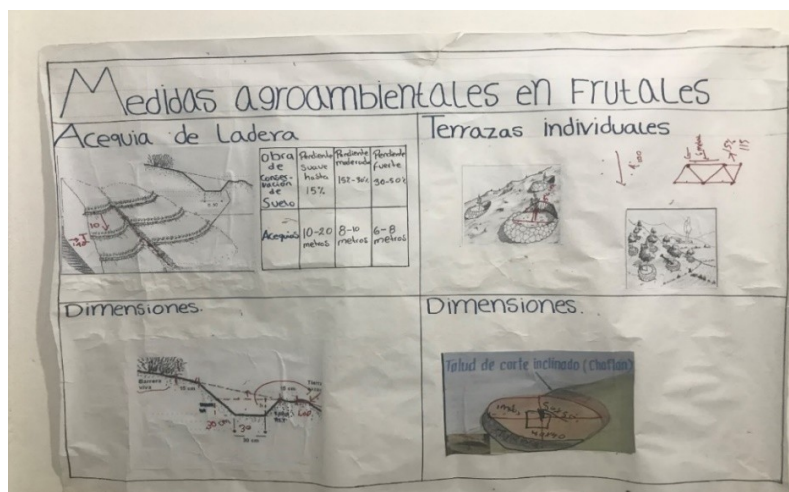 Medidas agroambientales en Frutales
Acequia de Ladera
obra de Conser-vación de Suelo
Pendiente Suave hasta 15%
Pendiente moderada 15%-30%
Pendiente fuerte 30-50%
Acequias
10-20 metros
8-10 metros
6-8 metros
10
Terrazas individuales
Dimensiones.
Barrera viva
15 cm
15 cm
30 cm
30
30 cm
Dimensiones.
Talud de corte inclinado (Chaflan)